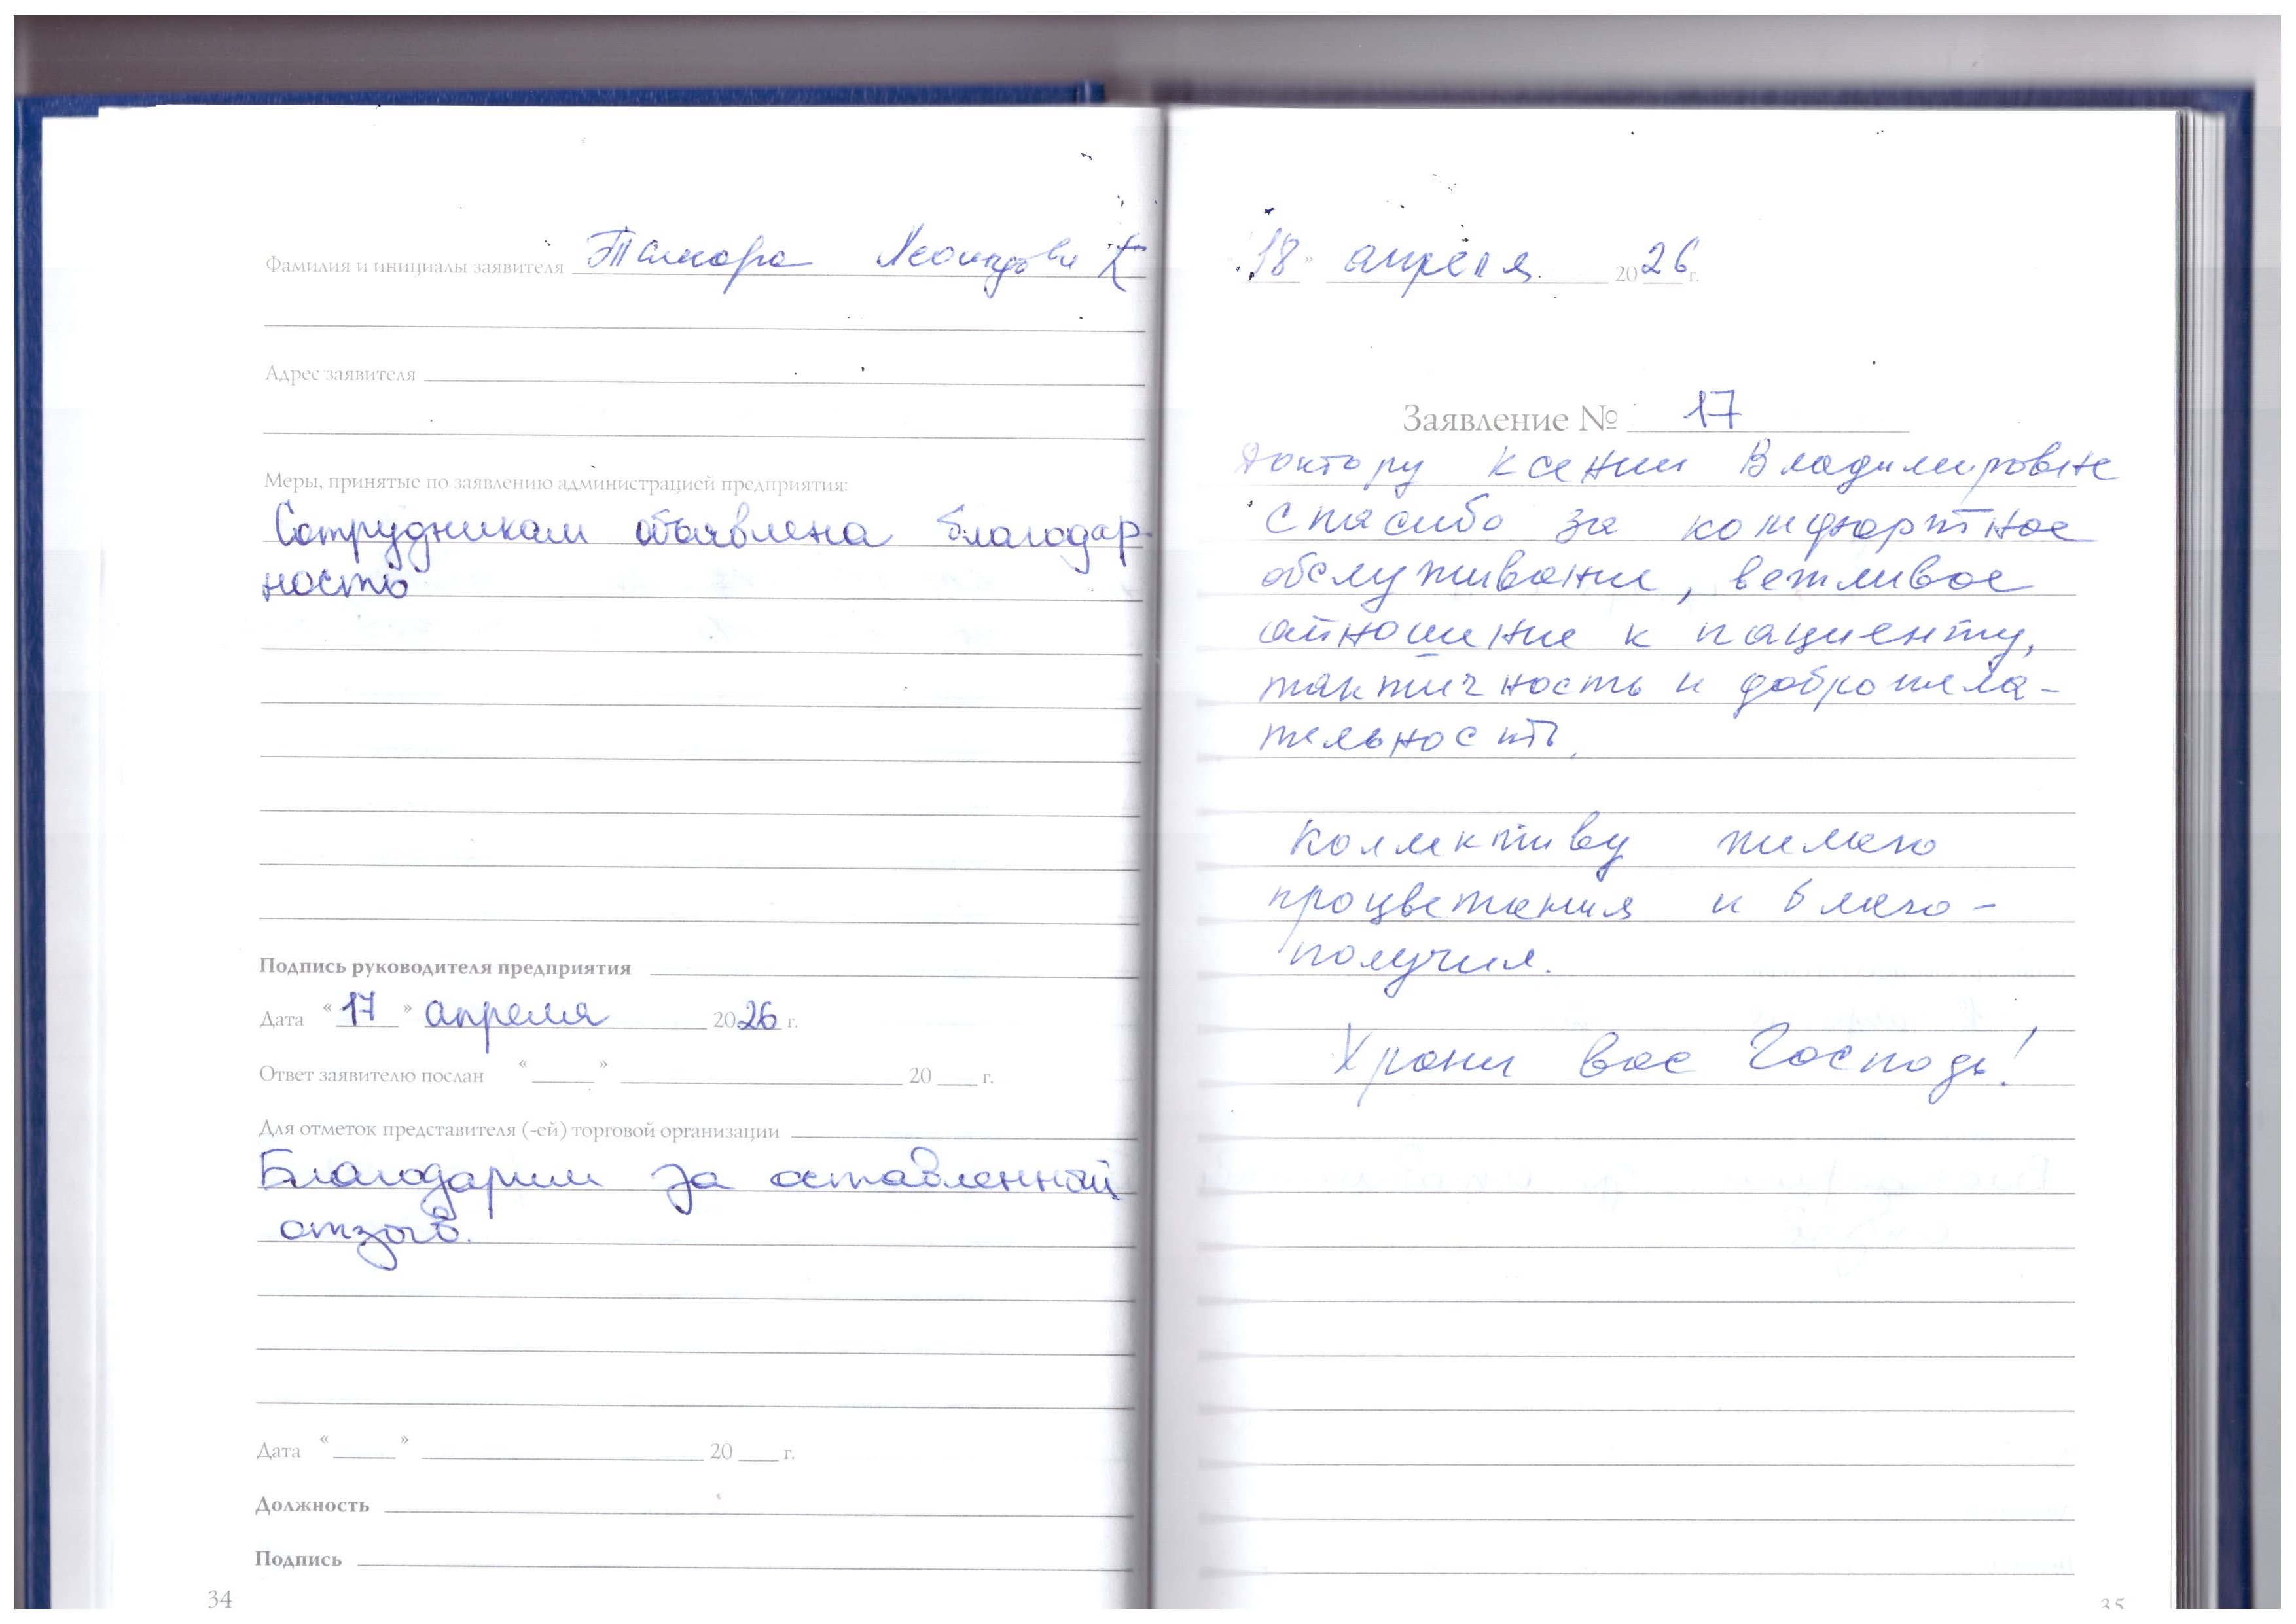 Фамилия и инициалы заявителя Тамара Леонидовна К
Адрес заявителя
Меры, принятые по заявлению администрацией предприятия:
Сотрудникам объявлена благодар-
ность
Подпись руководителя предприятия
Дата « 17 » апреля 2026 г.
Ответ заявителю послан « » 20 г.
Для отметок представителя (-ей) торговой организации
Благодарим за оставленный
отзыв.
Дата « » 20 г.
Должность
Подпись
34
18 » апреля 2026 г.
Заявление № 17
Доктору Ксении Владимировне
спасибо за комфортное
обслуживани, вежливое
отношение к пациенту,
тактичность и доброжела-
тельность.
Коллективу желаю
процветания и благо-
получия.
Храни вас Господь!
35